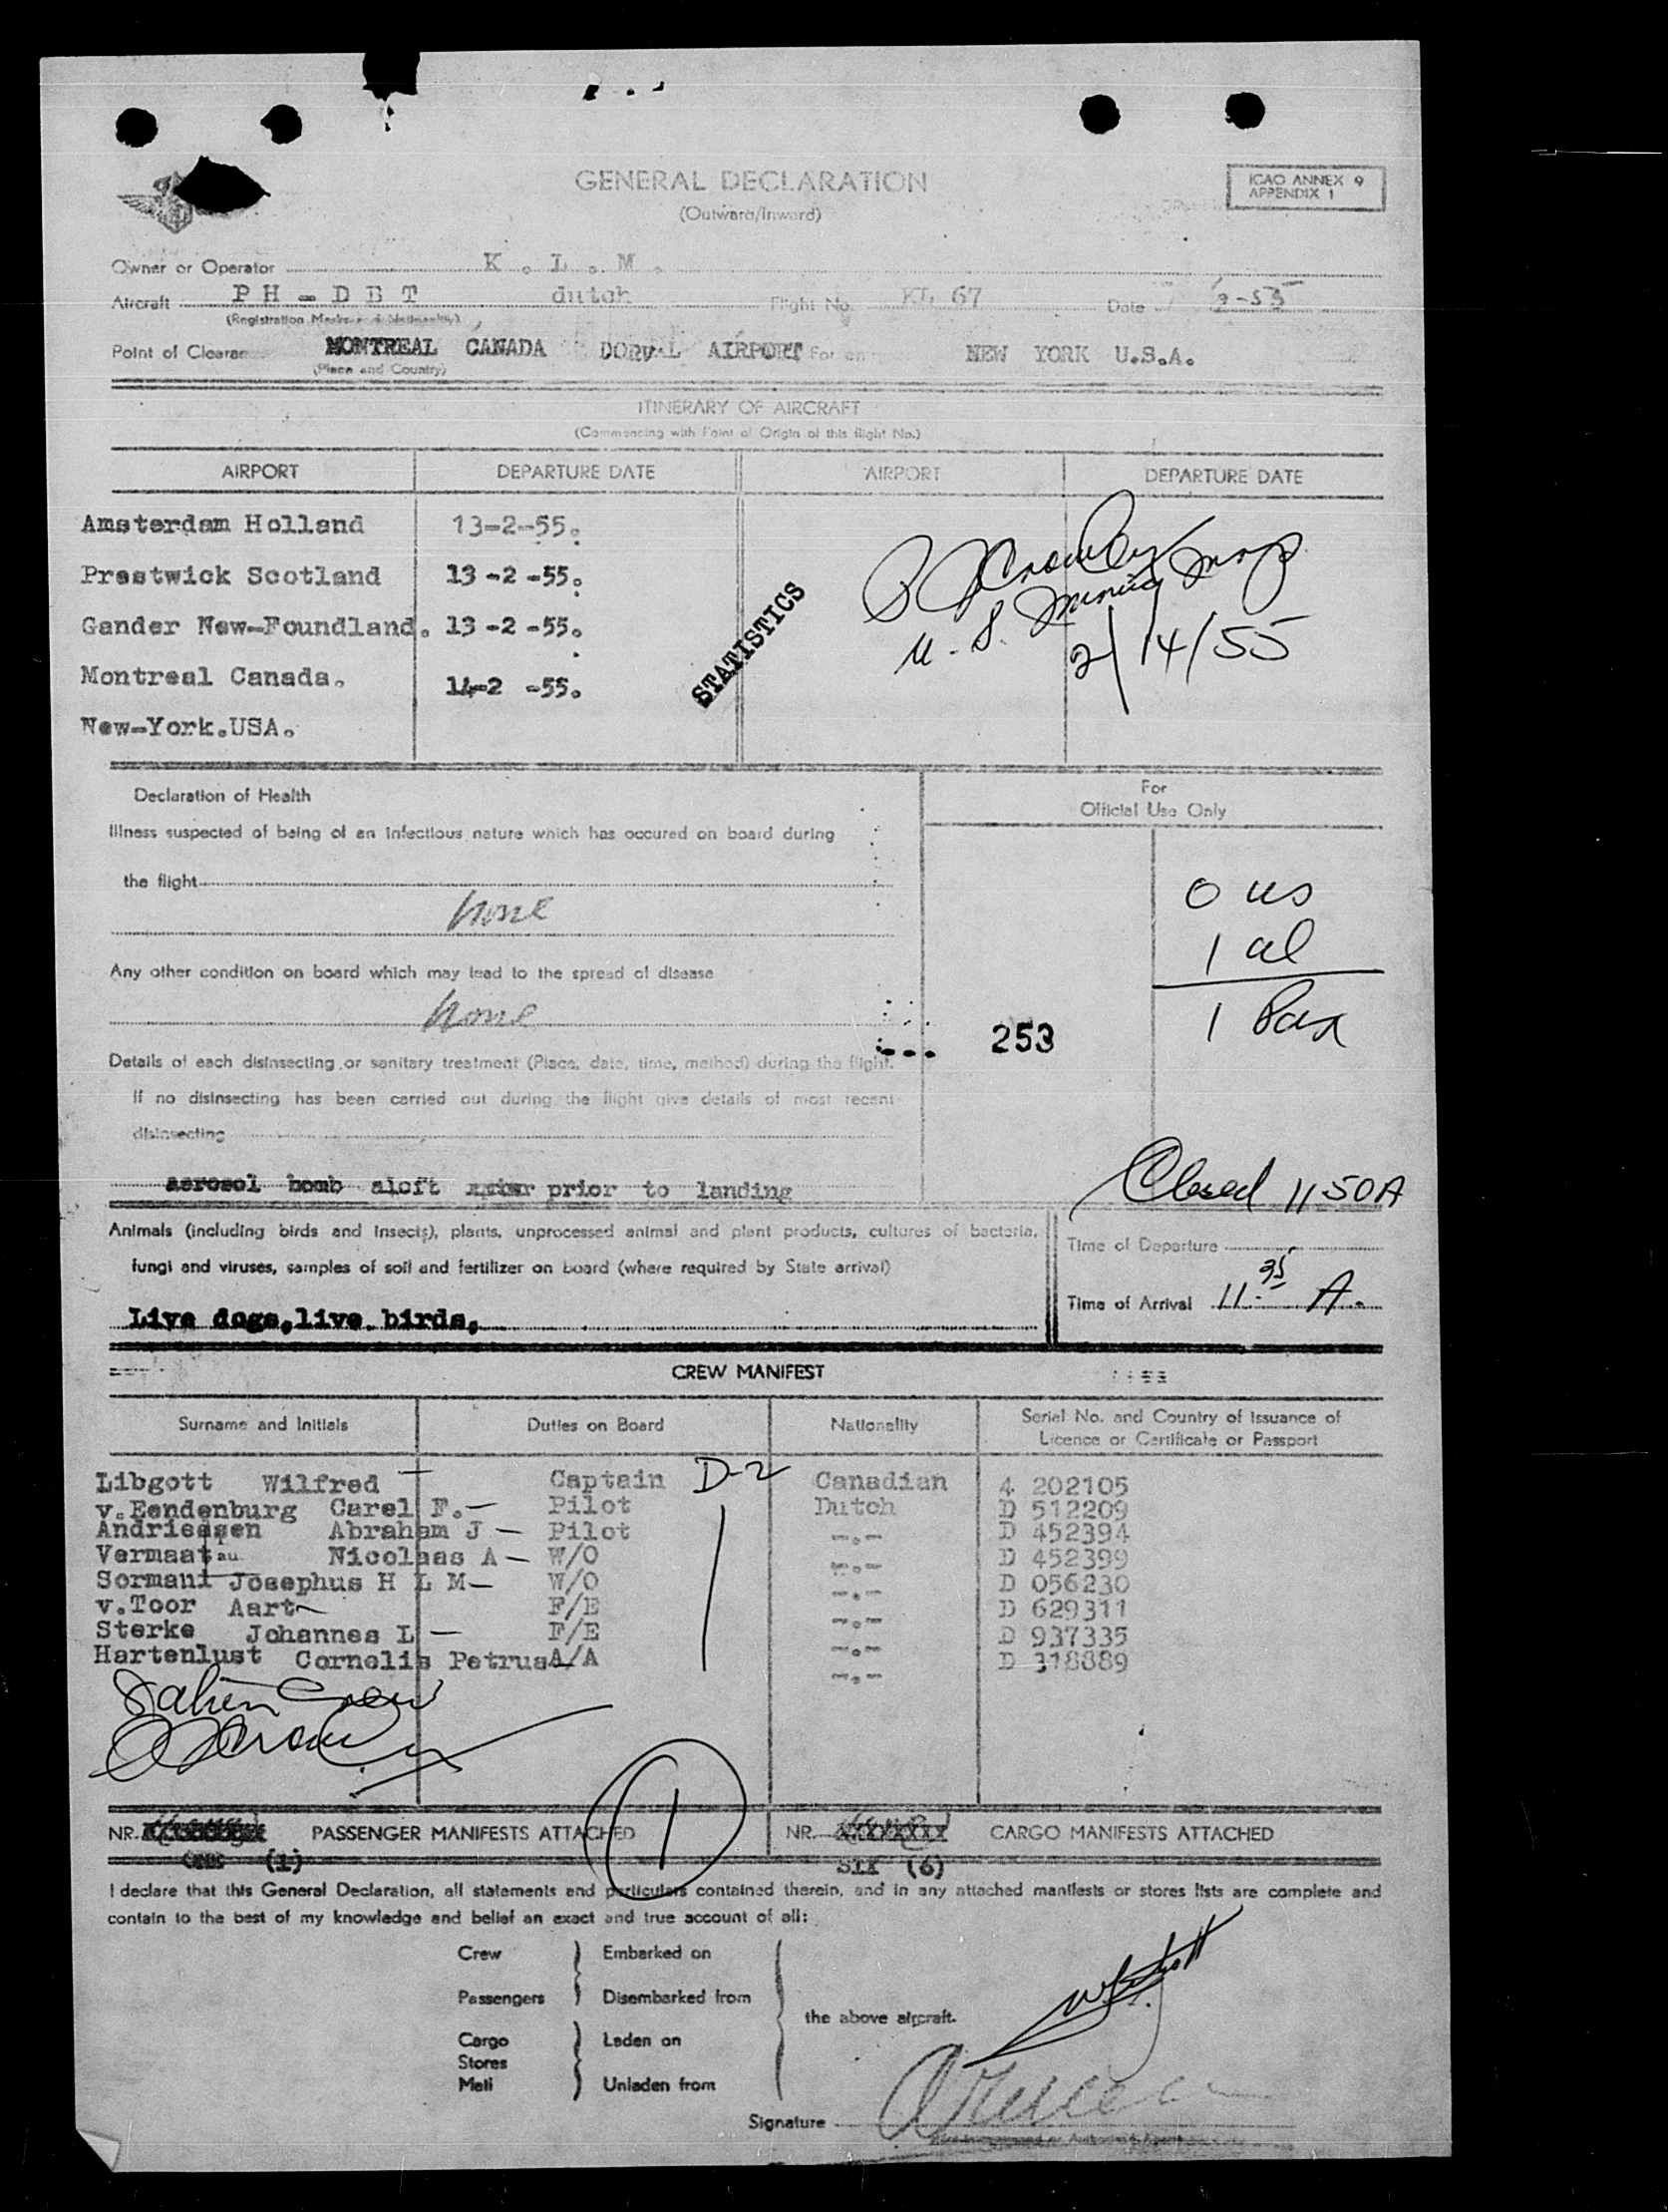 GENERAL DECLARATION
(Outward/Inward)
ICAO ANNEX 9
APPENDIX 1
Owner or Operator K. L. M.
Aircraft PH-DBT dutch Flight No. KL 67 Date 2-55
(Registration Marks
Point of MONTREAL CANADA DORVAL AIRPORT For NEW YORK U.S.A.
(Place and Country)
ITINERARY OF AIRCRAFT
(Commencing with Point of Origin of this flight No.)
AIRPORT DEPARTURE DATE AIRPORT DEPARTURE DATE
Amsterdam Holland 13-2-55.
Prestwick Scotland 13-2-55.
Gander New-Foundland. 13-2-55.
Montreal Canada. 14-2-55.
New-York.USA.
STATISTICS
Crowley
U.S.
2/14/55
Declaration of Health
Illness suspected of being of an infectious nature which has occured on board during
the flight
none
Any other condition on board which may lead to the spread of disease
none
Details of each disinsecting or sanitary treatment (Place, date, time, method) during the flight.
If no disinsecting has been carried out during the flight give details of most recent
disinsecting
aerosol bomb aloft prior to landing
For
Official Use Only
0 us
1 al
1 Pax
253
Closed 1150A
Animals (including birds and insects), plants, unprocessed animal and plant products, cultures of bacteria,
fungi and viruses, samples of soil and fertilizer on board (where required by State arrival)
Live dogs,live birds,
Time of Departure
Time of Arrival 11.35 A.
CREW MANIFEST
Surname and Initials Duties on Board Nationality Serial No. and Country of Issuance of
Licence or Certificate or Passport
Libgott Wilfred — Captain D-2 Canadian 4 202105
v.Eendenburg Carel F.— Pilot Dutch D 512209
Andriessen Abraham J — Pilot -.- D 452394
Vermaat au Nicolaas A — W/O -.- D 452399
Sormani Josephus H L M— W/O -.- D 056230
v.Toor Aart F/E -.- D 629311
Sterke Johannes L — F/E -.- D 937335
Hartenlust Cornelis Petrus A/A -.- D 318889
Crew
Crowley
NR. PASSENGER MANIFESTS ATTACHED 1 NR. CARGO MANIFESTS ATTACHED
One (1) SIX (6)
I declare that this General Declaration, all statements and particulars contained therein, and in any attached manifests or stores lists are complete and
contain to the best of my knowledge and belief an exact and true account of all:
Crew Embarked on
Passengers Disembarked from
the above aircraft.
Cargo Laden on
Stores
Mail Unladen from
Signature